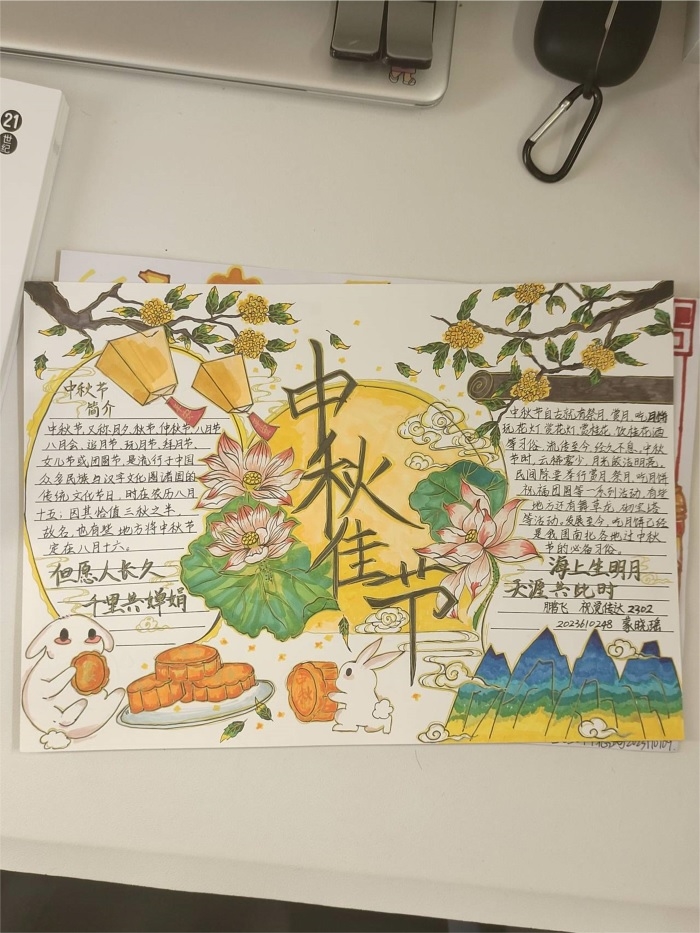 21
世纪
中秋节
简介
中秋节,又称月夕,秋节,仲秋节,八月节
八月会,追月节,玩月节,拜月节,
女儿节或团圆节,是流行于中国
众多民族与汉字文化圈诸国的
传统文化节日,时在农历八月
十五;因其恰值三秋之半,
故名,也有些地方将中秋节
定在八月十六。
但愿人长久
千里共婵娟
中
秋
佳
节
中秋节自古就有祭月、赏月、吃月饼
玩花灯,赏花灯,赏桂花,饮桂花酒
等习俗,流传至今,经久不息。中秋
节时,云稀雾少,月光皎洁明亮,
民间除要举行赏月,祭月,吃月饼
祝福团圆等一系列活动,有些
地方还有舞草龙,砌宝塔
等活动。发展至今,吃月饼已经
是我国南北各地过中秋
节的必备习俗。
海上生明月
天涯共此时
鹏飞 视觉传达2302
2023610248